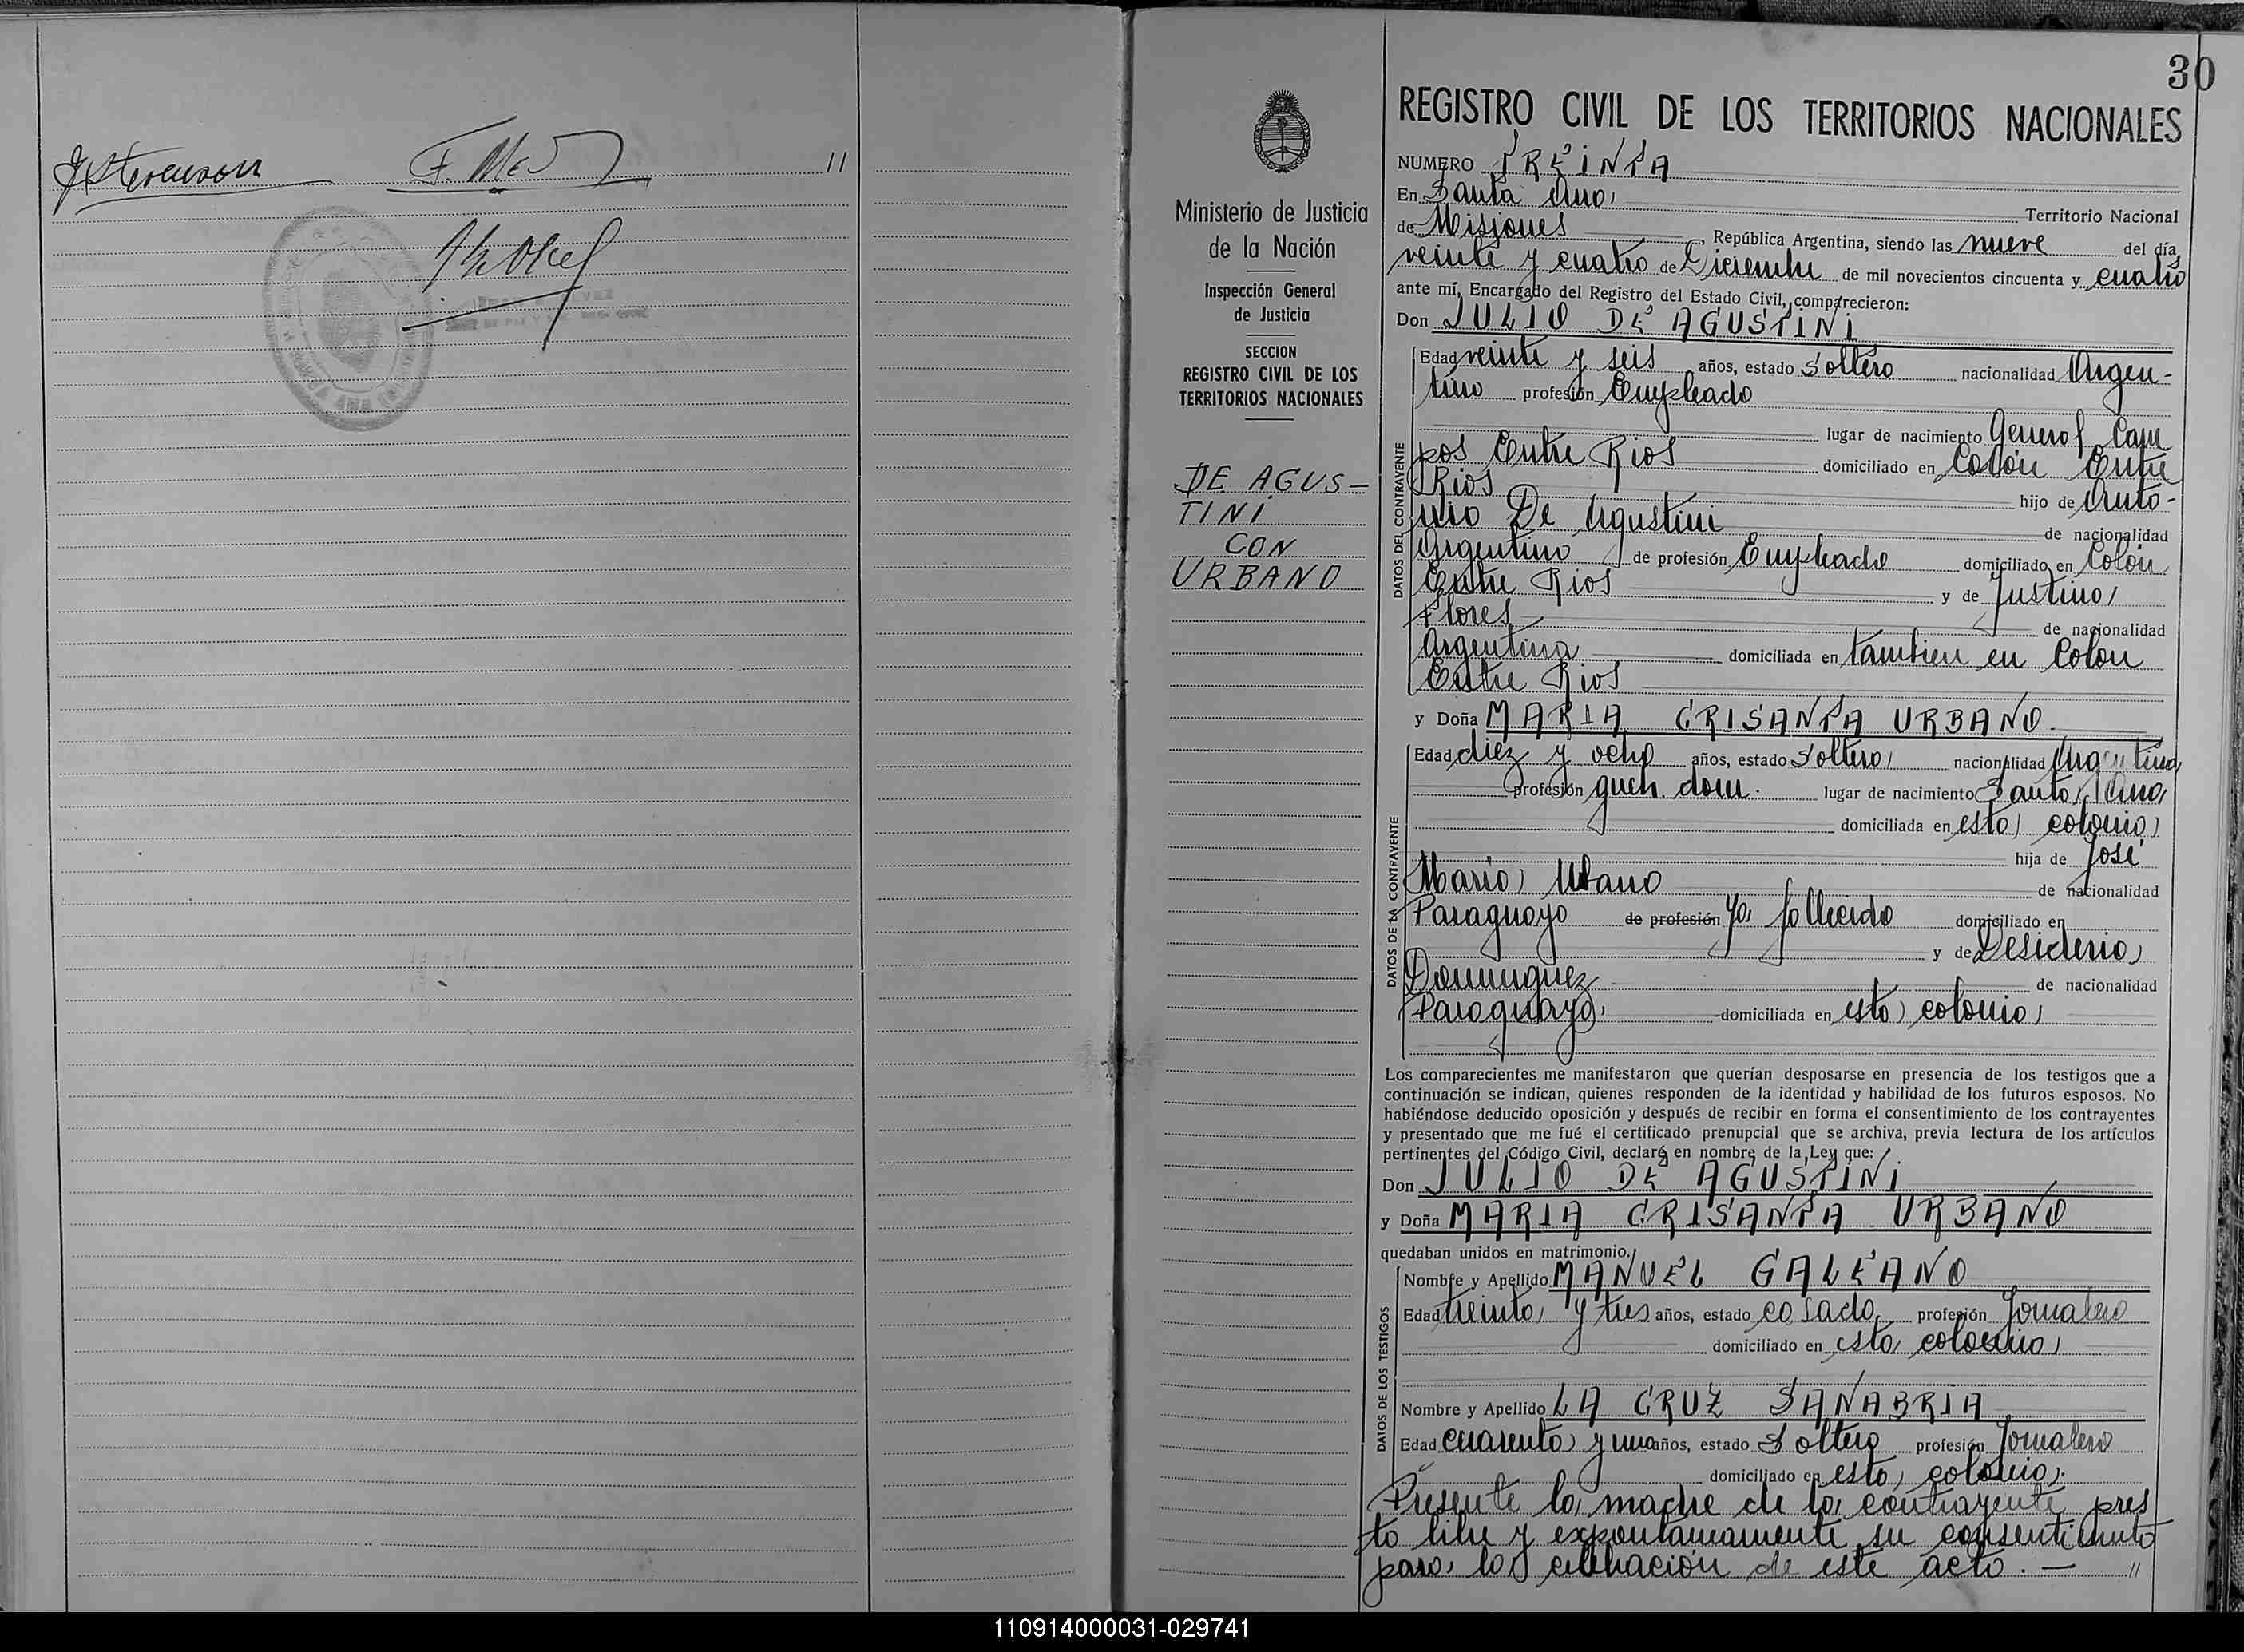 11
30
REGISTRO CIVIL DE LOS TERRITORIOS NACIONALES
NUMERO TREINTA
En Santa Ana Territorio Nacional
de Misiones, República Argentina, siendo las nueve del día
veinte y cuatro de Diciembre de mil novecientos cincuenta y cuatro
ante mí, Encargado del Registro del Estado Civil, comparecieron:
Don JULIO DE AGUSTINI
Edad veinte y seis años, estado soltero nacionalidad Argen-
tino profesión Empleado
lugar de nacimiento General Cam
pos Entre Rios domiciliado en Colón Entre
Rios hijo de Anto-
nio De Agustini de nacionalidad
Argentino de profesión Empleado domiciliado en Colón
Entre Rios y de Justina
Flores de nacionalidad
Argentina domiciliada en tambien en Colon
Entre Rios
y Doña MARIA CRISANTA URBANO
Edad diez y ocho años, estado soltera nacionalidad Argentina
profesión queh. dom. lugar de nacimiento Santa Ana
domiciliada en esta colonia
hija de José
Maria Urbano de nacionalidad
Paraguayo de profesión ya fallecido domiciliado en
y de Desideria
Dominguez de nacionalidad
Paraguaya domiciliada en esta colonia
Los comparecientes me manifestaron que querían desposarse en presencia de los testigos que a
continuación se indican, quienes responden de la identidad y habilidad de los futuros esposos. No
habiéndose deducido oposición y después de recibir en forma el consentimiento de los contrayentes
y presentado que me fué el certificado prenupcial que se archiva, previa lectura de los artículos
pertinentes del Código Civil, declaré en nombre de la Ley que:
Don JULIO DE AGUSTINI
y Doña MARIA CRISANTA URBANO
quedaban unidos en matrimonio.
Nombre y Apellido MANUEL GALEANO
Edad treinta y tres años, estado casado profesión Jornalero
domiciliado en esta colonia
Nombre y Apellido LA CRUZ SANABRIA
Edad cuarenta y un años, estado Soltero profesión Jornalero
domiciliado en esta colonia.
Presente la madre de la contrayente pres
to libre y expontaneamente su consentimiento
para la celebración de este acto. — "
Ministerio de Justicia
de la Nación
Inspección General
de Justicia
SECCION
REGISTRO CIVIL DE LOS
TERRITORIOS NACIONALES
DE AGUS-
TINI
CON
URBANO
DATOS DEL CONTRAYENTE
DATOS DE LA CONTRAYENTE
DATOS DE LOS TESTIGOS
110914000031-029741